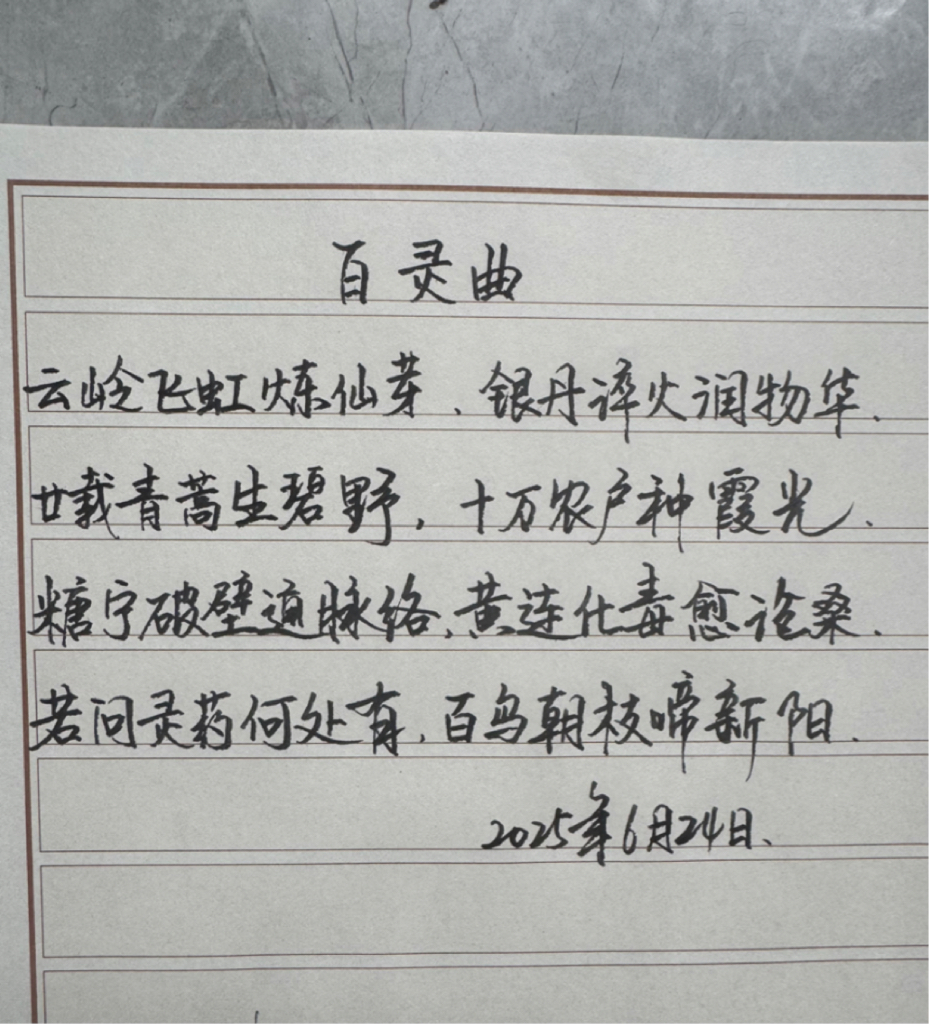 百灵曲
云岭飞虹炼仙芽、银丹谇火润物华.
廿载青蒿生碧野，十万农户种霞光.
糖宁破壁通脉络,黄连化毒愈沧桑.
若问灵药何处有,百鸟朝枝啼新阳.
2025年6月24日、